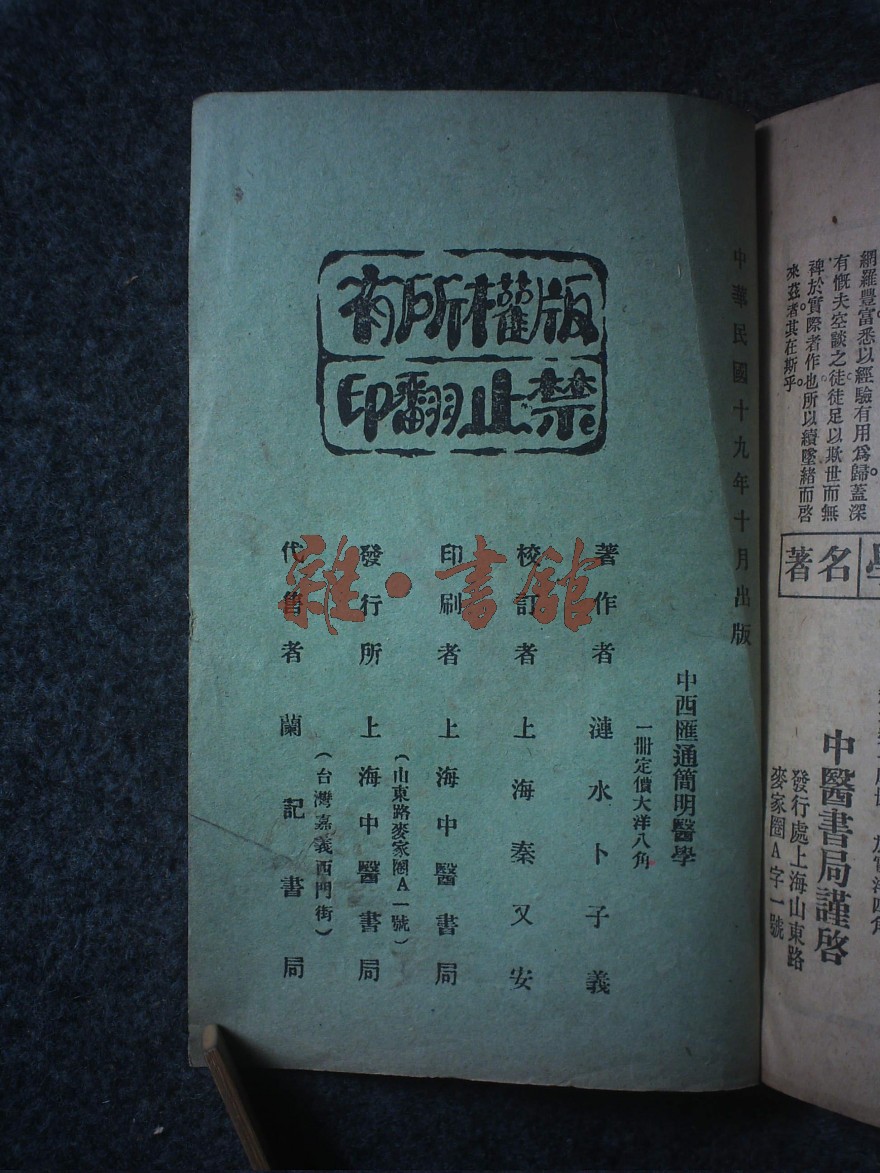 網羅豐富悉以經驗有用爲歸蓋深
有慨夫空談之徒徒足以欺世而無
裨於實際者作也所以續墜緒而啓
來茲者其在斯乎
名著
中醫書局謹啓
發行處上海山東路
麥家圈A字一號
版權所有
禁止翻印
中華民國十九年十月出版
中西匯通簡明醫學
一冊定價大洋八角
著作者 漣水卜子義
校訂者 上海秦又安
印刷者 上海中醫書局
(山東路麥家圈A一號)
發行所 上海中醫書局
(台灣嘉義西門街)
代售者 蘭記書局
雜·書館